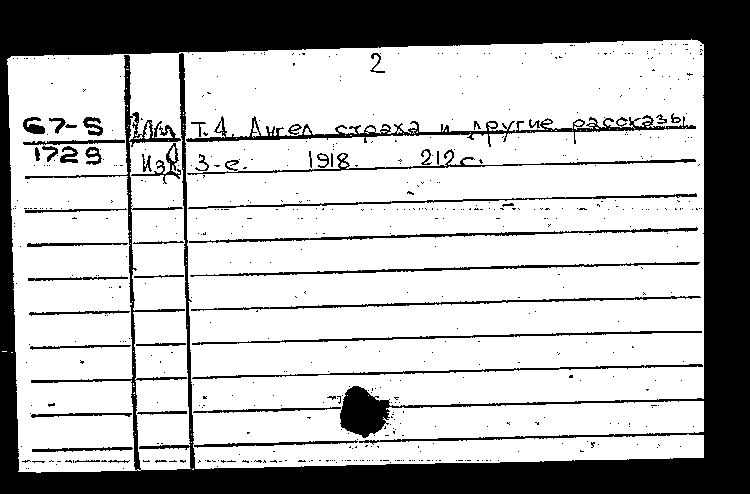 2
67-5 Т.4. Ангел страха и другие рассказы.
1729 Изд. 3-е. 1918. 212с.